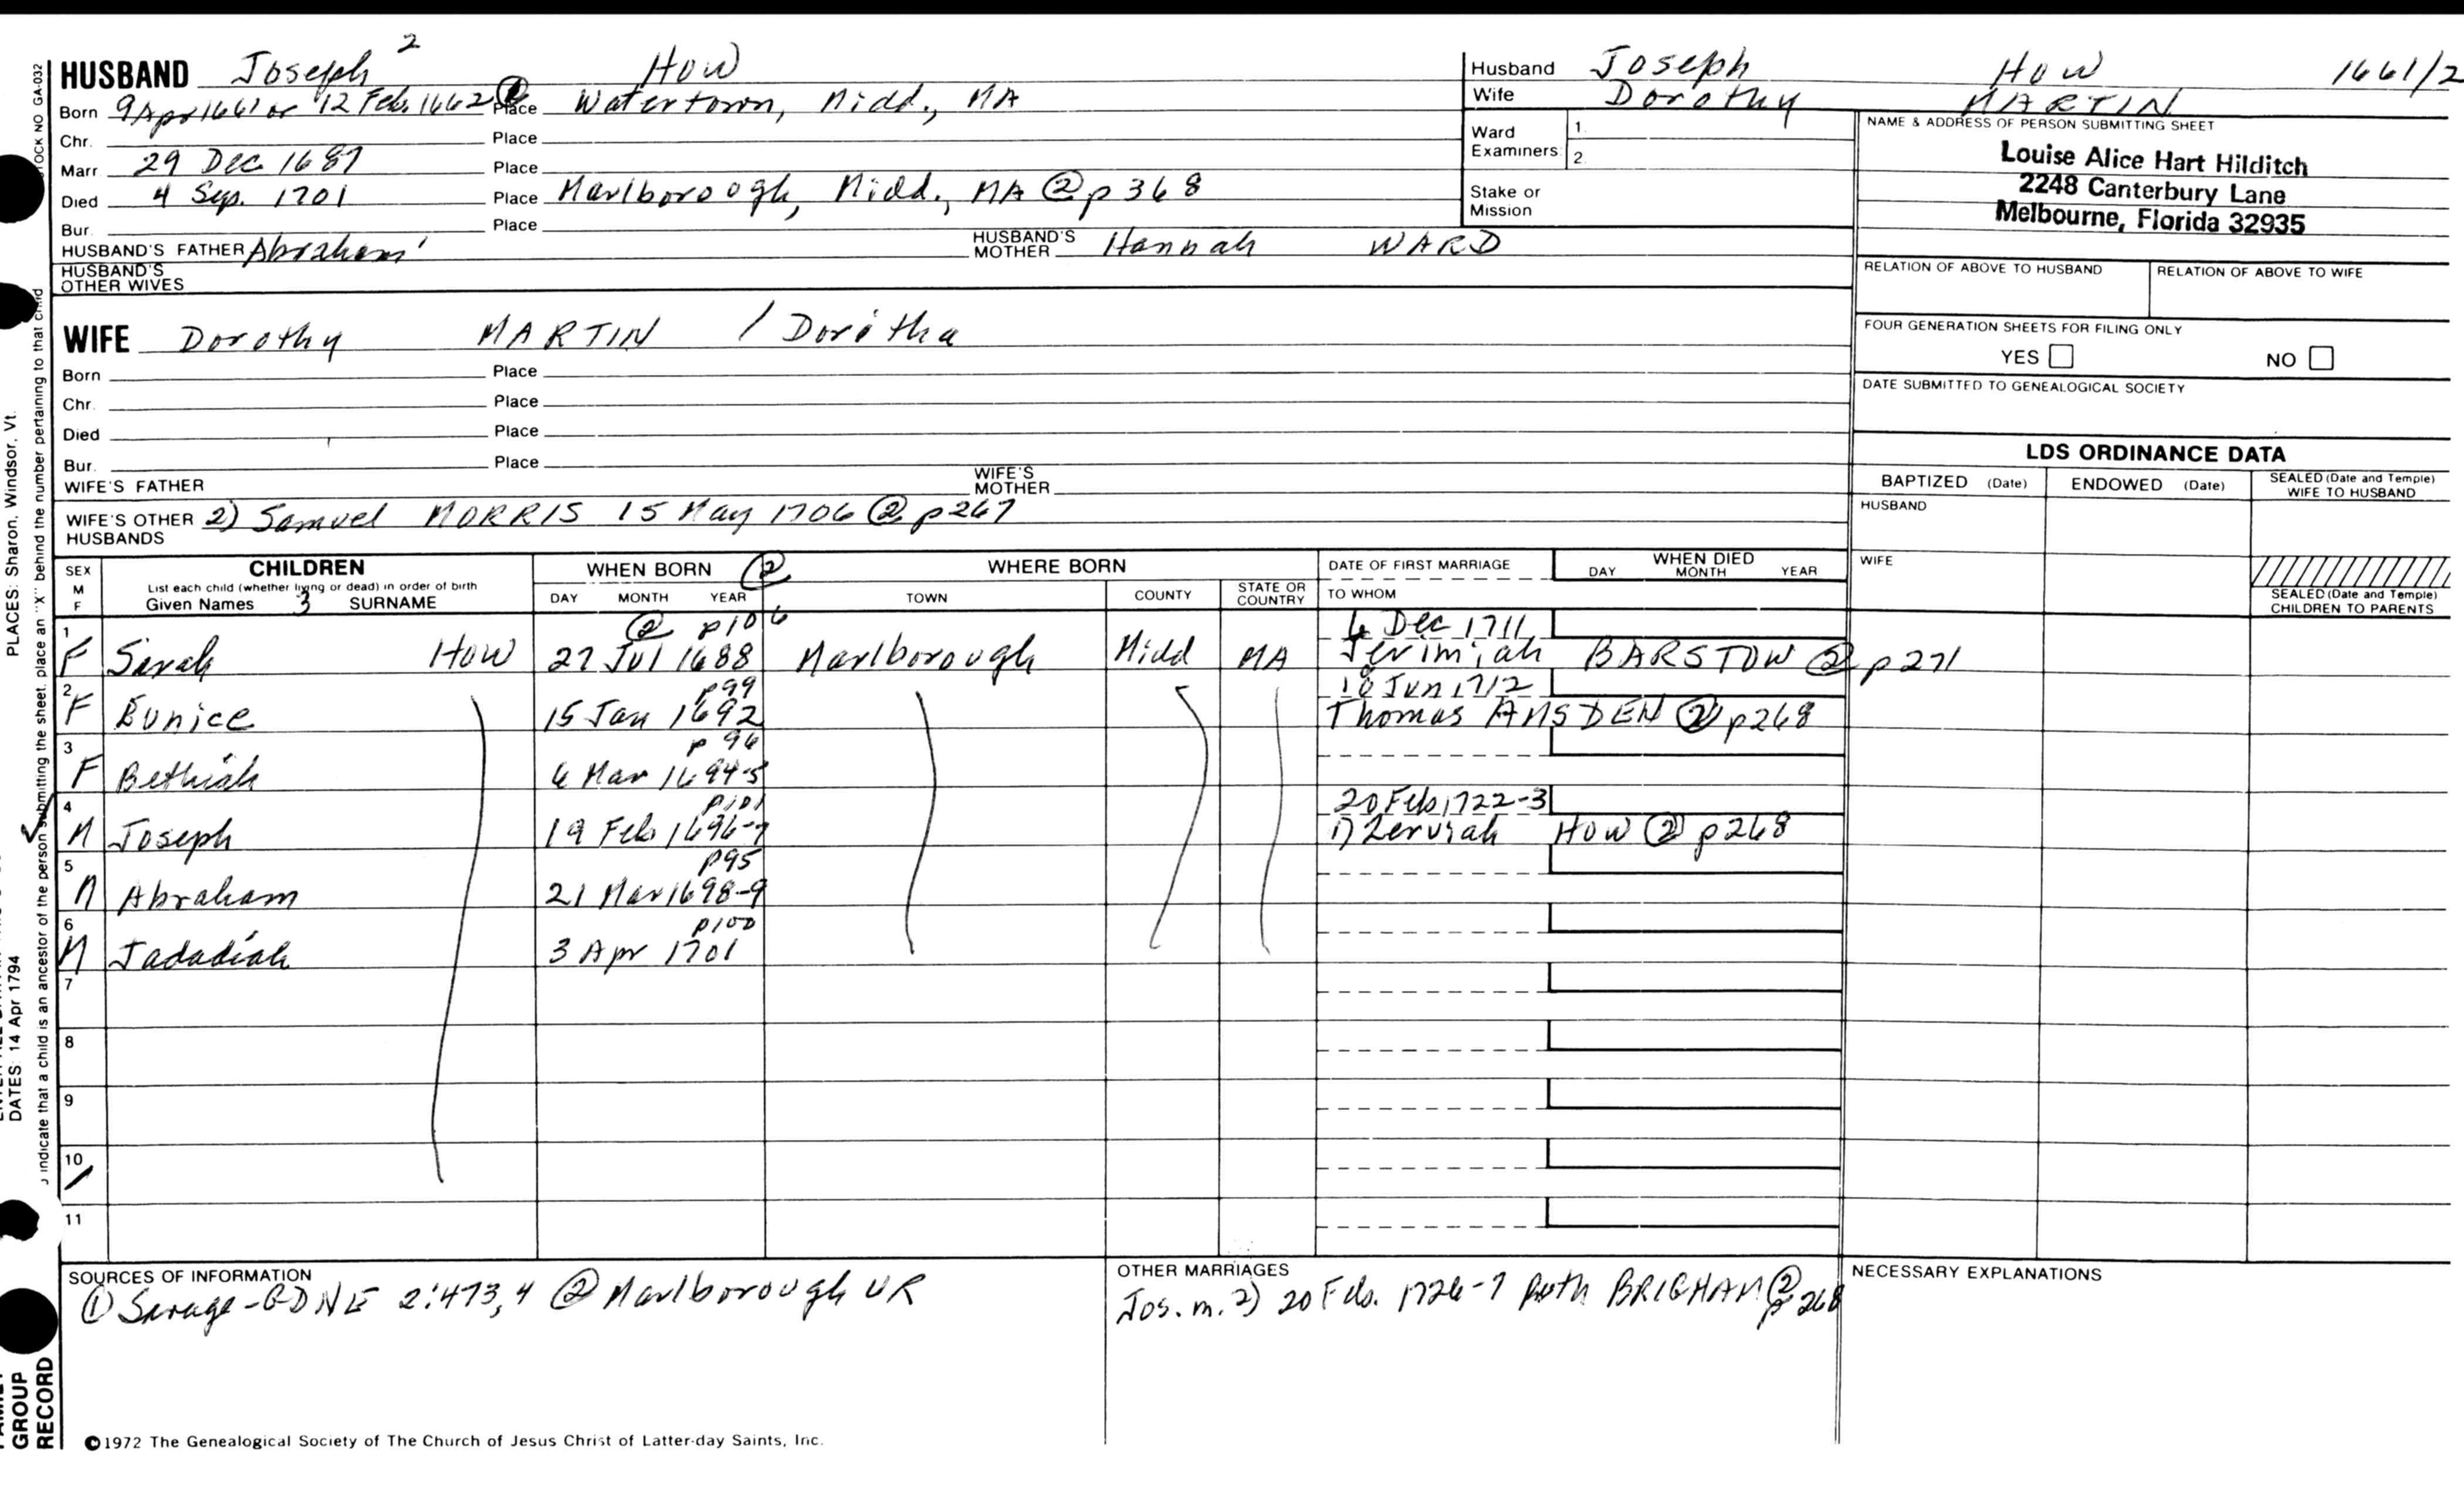 HUSBAND Joseph 2 How
Born 9 Apr 1661 or 12 Feb. 1662 ① Place Watertown, Midd., MA
Chr. Place
Marr 29 Dec 1687 Place
Died 4 Sep. 1701 Place Marlborough, Midd., MA ② p 368
Bur. Place
HUSBAND'S FATHER Abraham 1 HUSBAND'S MOTHER Hannah WARD
HUSBAND'S OTHER WIVES
Husband Joseph How 1661/2
Wife Dorothy MARTIN
Ward Examiners 1. 2.
Stake or Mission
NAME & ADDRESS OF PERSON SUBMITTING SHEET
Louise Alice Hart Hilditch
2248 Canterbury Lane
Melbourne, Florida 32935
RELATION OF ABOVE TO HUSBAND RELATION OF ABOVE TO WIFE
FOUR GENERATION SHEETS FOR FILING ONLY
YES NO
DATE SUBMITTED TO GENEALOGICAL SOCIETY
WIFE Dorothy MARTIN / Doritha
Born Place
Chr. Place
Died Place
Bur. Place
WIFE'S FATHER WIFE'S MOTHER
WIFE'S OTHER HUSBANDS 2) Samuel MORRIS 15 May 1706 ② p 267
LDS ORDINANCE DATA
BAPTIZED (Date) ENDOWED (Date) SEALED (Date and Temple) WIFE TO HUSBAND
HUSBAND
WIFE
SEALED (Date and Temple) CHILDREN TO PARENTS
SEX M F CHILDREN WHEN BORN ② WHERE BORN DATE OF FIRST MARRIAGE WHEN DIED
List each child (whether living or dead) in order of birth
Given Names 3 SURNAME DAY MONTH YEAR TOWN COUNTY STATE OR COUNTRY TO WHOM DAY MONTH YEAR
② p106 6 Dec 1711
1 F Sarah How 27 Jul 1688 Marlborough Midd MA Jerimiah BARSTOW ② p 271
p99 18 Jun 1712
2 F Eunice 15 Jan 1692 Thomas AMSDEN ② p268
p 96
3 F Bethiah 6 Mar 1694-5
p101 20 Feb 1722-3
4 M Joseph 19 Feb 1696-7 1) Zerviah How ② p268
p95
5 M Abraham 21 Mar 1698-9
p100
6 M Jadadiah 3 Apr 1701
7
8
9
10
11
SOURCES OF INFORMATION
① Savage-GDNE 2:473,4 ② Marlborough VR
OTHER MARRIAGES
Jos. m. 2) 20 Feb. 1726-7 Ruth BRIGHAM ② p 268
NECESSARY EXPLANATIONS
©1972 The Genealogical Society of The Church of Jesus Christ of Latter-day Saints, Inc.
STOCK NO GA-032
indicate that a child is an ancestor of the person submitting the sheet, place an "X" behind the number pertaining to that child
PLACES: Sharon, Windsor, Vt.
DATES: 14 Apr 1794
GROUP
RECORD